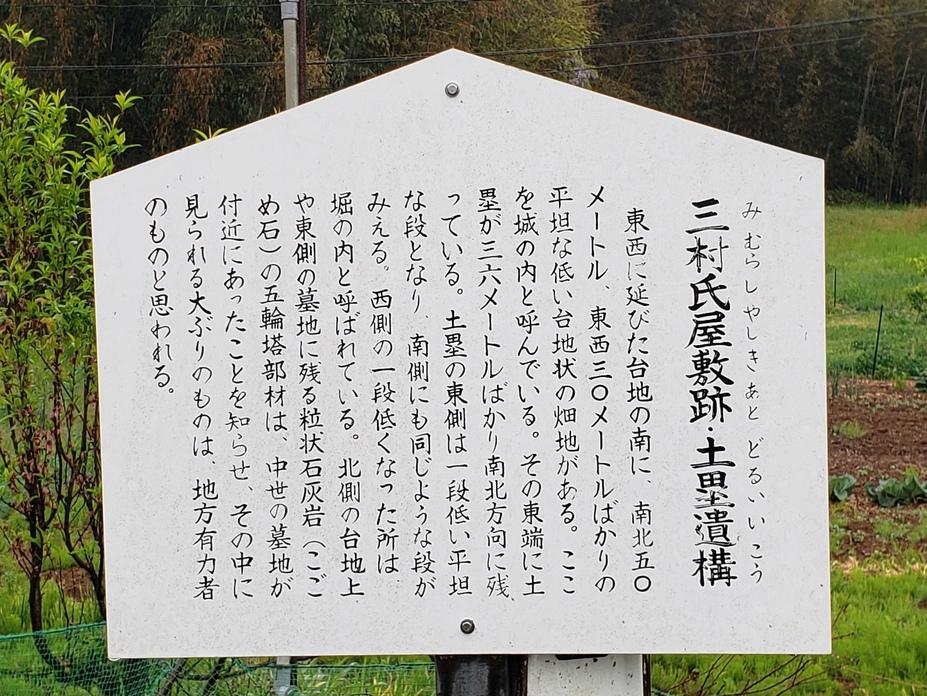 みむらしやしきあと どるいいこう
三村氏屋敷跡・土塁遺構
東西に延びた台地の南に、南北五〇
メートル、東西三〇メートルばかりの
平坦な低い台地状の畑地がある。ここ
を城の内と呼んでいる。その東端に土
塁が三六メートルばかり南北方向に残
っている。土塁の東側は一段低い平坦
な段となり 南側にも同じような段が
みえる。西側の一段低くなった所は
堀の内と呼ばれている。北側の台地上
や東側の墓地に残る粒状石灰岩（こご
め石）の五輪塔部材は、中世の墓地が
付近にあったことを知らせ、その中に
見られる大ぶりのものは、地方有力者
のものと思われる。